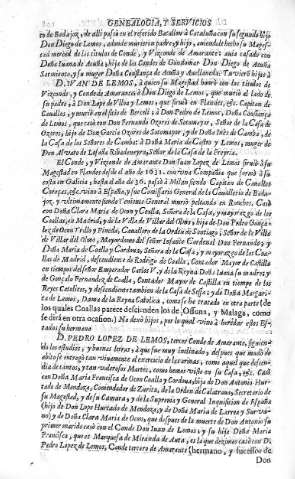 GENEALOGIA, Y SERVICIOS
to de Badajoz, de alli passò en el referido Batallon à Cataluña con su segundo hijo
Don Diego de Lemos, adonde murieron padre, y hijo, aviendole hecho su Magestad
merced de los titulos de Conde, y Vizconde de Amarante: avia casado con
Doña Juana de Acuña, hija de los Condes de Gondomar Don Diego de Acuña
Sarmiento, y su muger Doña Constança de Acuña y Avellaneda. Tuvieron hijo à
D. JUAN DE LEMOS, à quien su Magestad honrò con los titulos de
Vizconde, y Conde de Amarante: à Don Diego de Lemos, que muriò al lado de
su padre, y à Don Lope de Ulloa y Lemos, que sirviò en Flandes, &c. Capitan de
Cavallos, y muriò en el sitio de Berceli: à Don Pedro de Lemos, Doña Constança
de Lemos, que casò con Don Fernando Ozores de Sotomayor, Señor de la Casa de
Ozores, hijo de Don Garcia Ozores de Sotomayor, y de Doña Inès de Camba, de
la Casa de los Señores de Camba: à Doña Maria de Castro y Lemos, muger de
Don Alvaro de Losada Ribadeneyra, Señor de la Casa de la Freyria.
El Conde, y Vizconde de Amarante Don Juan Lopez de Lemos sirviò à su
Magestad en Flandes desde el año de 1631. con una Compañia que formò à su
costa en Galicia, hasta el año de 36. passò à Milan siendo Capitan de Cavallos
Corazas, &c. vino à España, y fue Comissario General de la Cavalleria de Badajoz,
y ultimamente siendo Teniente General muriò peleando en Ronches. Casò
con Doña Clara Maria de Oca y Coalla, Señora de la Casa, y mayorazgo de los
Coallas, en Madrid, y de la Villa de Villar del Olmo, hija de Don Pedro Gonzalez
de Oca Trillo y Pineda, Cavallero de la Orden de Santiago, Señor de la Villa
de Villar del Olmo, Mayordomo del señor Infante Cardenal Don Fernando, y
Doña Maria de Coalla y Cardona, Señora de la Casa, y mayorazgo de los Coallas
de Madrid, descendiente de Rodrigo de Coalla, Contador Mayor de Castilla
en tiempo del señor Emperador Carlos V. y de la Reyna Doña Juana su madre, y
de Gonçalo Fernandez de Coalla, Contador Mayor de Castilla en tiempo de los
Reyes Catolicos, y descendiente tambien de la Casa de Sesse: y de Doña Margarita
de Lemos, Dama de la Reyna Catolica, como se ha tratado en otra parte (de
los quales Coallas parece descienden los de Ossuna, y Malaga, como
se dirà en otra ocasion.) No dexò hijos, por lo qual vino à heredar estos Estados
su hermano
D. PEDRO LOPEZ DE LEMOS, tercer Conde de Amarante, siguiendo
los estudios, y buenas letras, à que fue muy inclinado; despues que mudò de
abito se entregò tan vivamente al exercicio de las armas, como aquel que descendia
de tantos, y tan valerosos Martes, como hemos visto en su Casa, &c. Casò
con Doña Maria Francisca de Oca Coallas y Cardona, hija de Don Antonio Hurtado
de Mendoza, Comendador de Zurita, en la Orden de Calatrava, Secretario de
su Magestad, y de su Camara, y de la Suprema y General Inquisicion de España
(hijo de Don Lope Hurtado de Mendoza, y de Doña Maria de Larrea y Survano)
y de Doña Clara Maria de Oca, que despues de la muerte de Don Antonio su
primer marido casò con el Conde Don Juan de Lemos, y su hija Doña Maria
Francisca, que es Marquesa de Miranda de Auta, es la que dezimos casò con D.
Pedro Lopez de Lemos, Conde tercero de Amarante (hermano, y sucessor de
Don